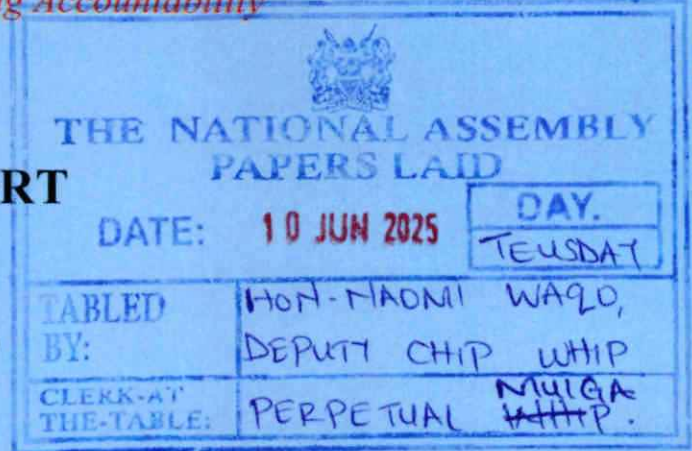 g Accountability
THE NATIONAL ASSEMBLY
PAPERS LAID
RT
DATE: 10 JUN 2025
DAY.
TEUSDAY
TABLED BY:
HON-NAOMI WAQO,
DEPUTY CHIP WHIP
CLERK-AT THE-TABLE:
MUIGA
PERPETUAL WHIP.